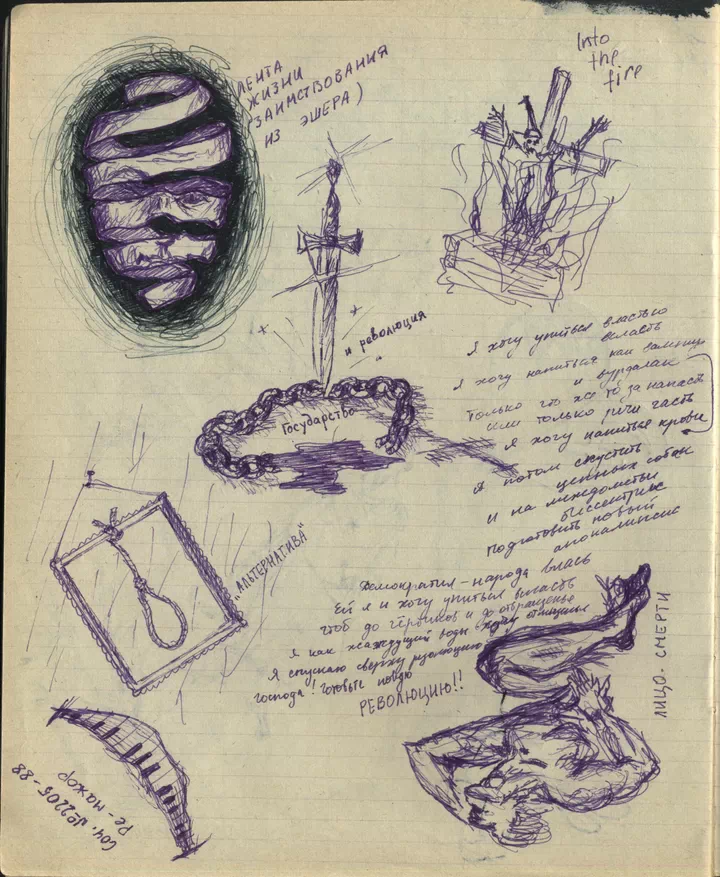 ЛЕНТА
ЖИЗНИ
(ЗАИМСТВОВАНИЯ
ИЗ ЭШЕРА)
Into
the
fire
и революция
Государство
Я хочу упиться властью
власть
Я хочу напиться как
и вурдалак
Только что же то за напасть
или только речи часть
Я хочу напиться крови
Я потом спустить
цепных собак
и на
Подготовить новый
апокалипсис
"АЛЬТЕРНАТИВА"
Демократия - народа власть
Ей я и хочу упиться власть
чтоб до и до отвращенья
Я как жаждущий воды хочу отмщенья
Я спускаю сверху революцию
господа! Готовьте
РЕВОЛЮЦИЮ!!
ЛИЦО-СМЕРТИ
СОЧ. №2205-88
Ре-мажор